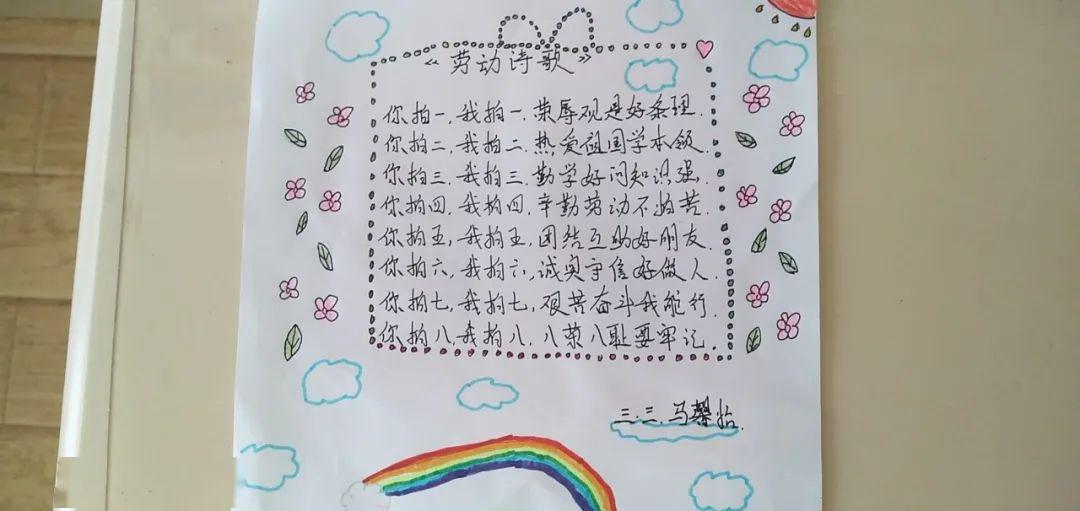 《劳动诗歌》
你拍一,我拍一.荣辱观是好条理.
你拍二.我拍二.热爱祖国学本领.
你拍三.我拍三.勤学好问知识强.
你拍四.我拍四.辛勤劳动不怕苦.
你拍五,我拍五,团结互助好朋友.
你拍六,我拍六,诚实守信好做人.
你拍七,我拍七,艰苦奋斗我能行.
你拍八,我拍八.八荣八耻要牢记.
三.三.马馨怡.